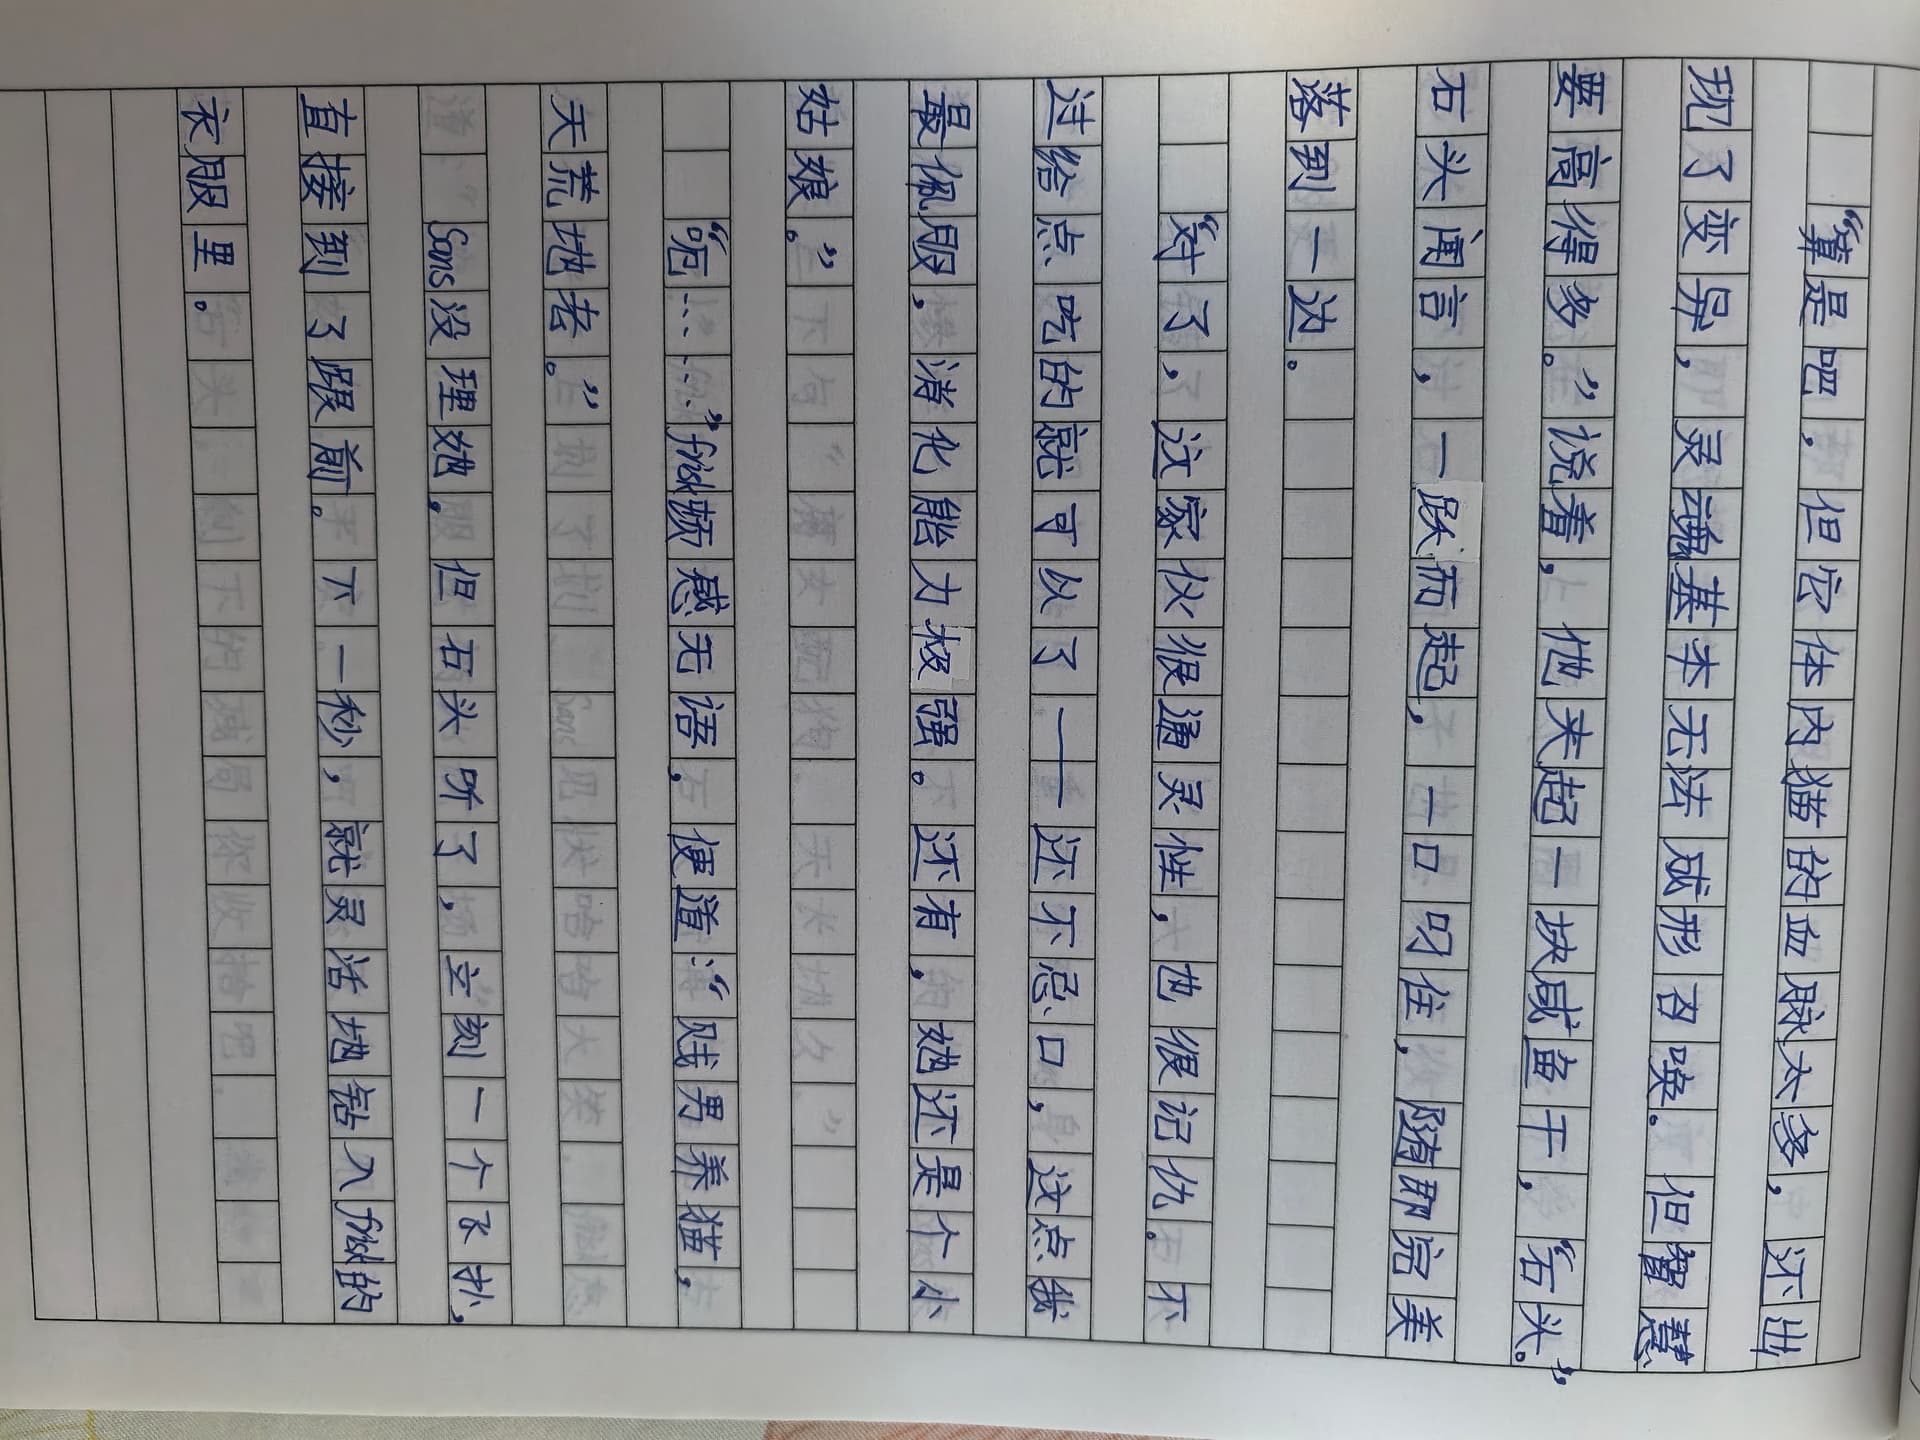 “算是吧，但它体内猫的血脉太多，还出
现了变异，灵魂基本无法成形召唤。但智慧
要高得多。”说着，他夹起一块咸鱼干，“石头。”
石头闻言，一跃而起，一口叼住，随即完美
落到一边。
“对了，这家伙很通灵性，也很记仇。不
过给点吃的就可以了——还不忌口，这点我
最佩服，消化能力极强。还有，她还是个小
姑娘。”
“呃……”frisk颇感无语，便道：“贱男养猫，
天荒地老。”
Sans没理她，但石头听了，立刻一个飞扑，
直接到了跟前。下一秒，就灵活地钻入frisk的
衣服里。